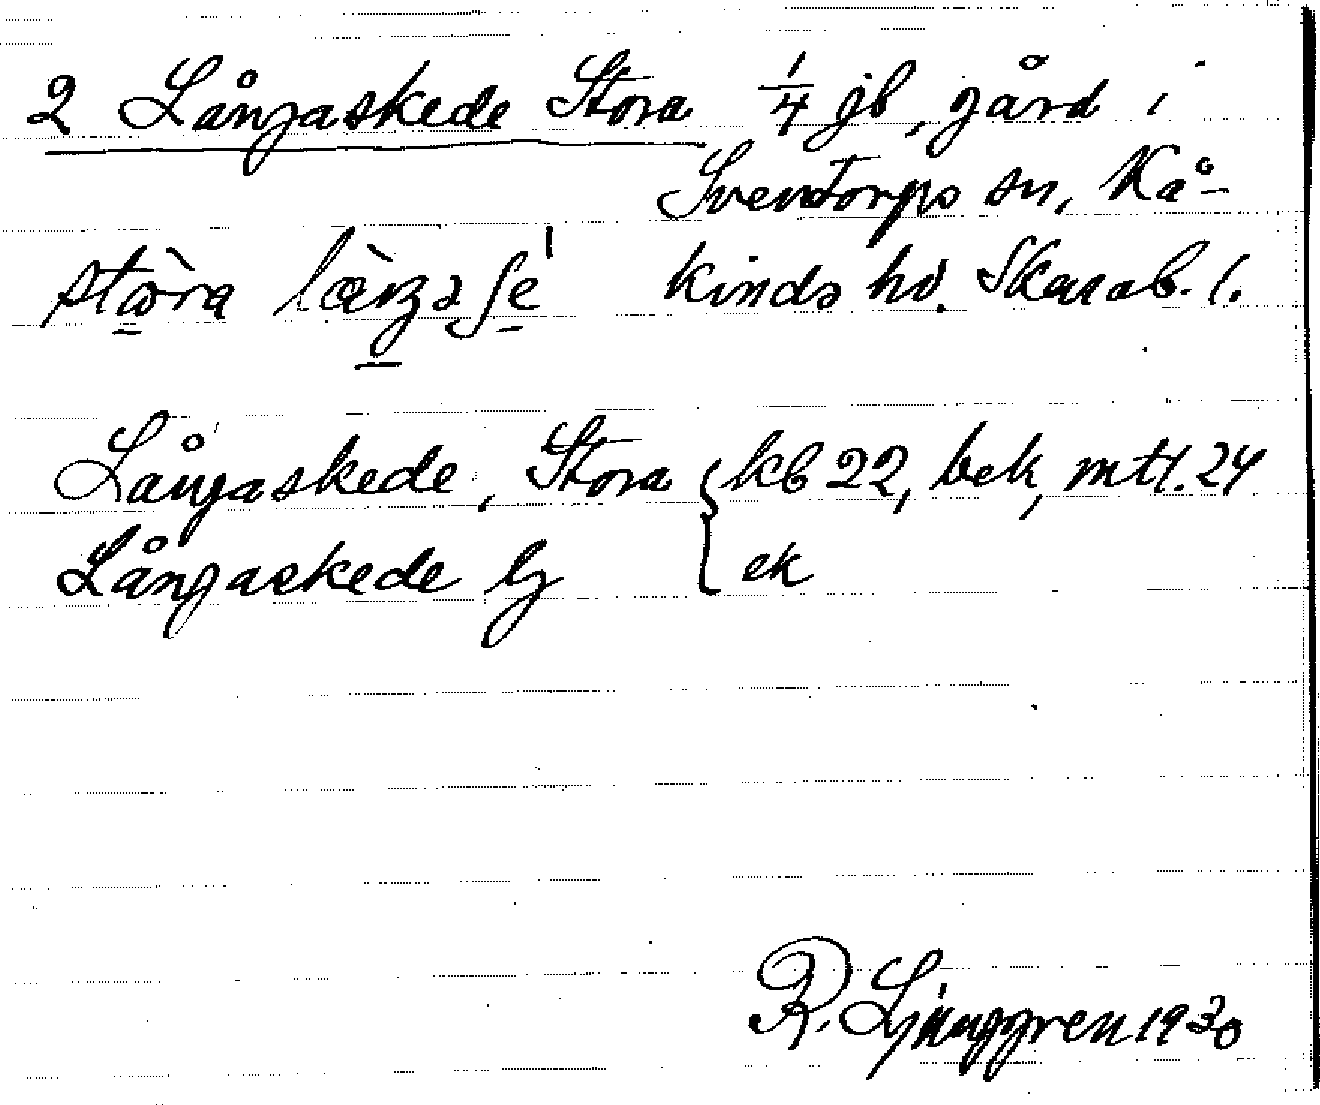 2 Långaskede Stora 1/4 jb, gård i
Sventorps sn, Kå-
kinds hd. Skarab. l.
Långaskede, Stora { kb 22, bek, mtl. 24
Långaskede ly { ek
R. Ljunggren 1930